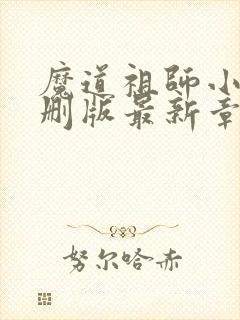 魔道祖師小
删版最新章
努尔哈赤